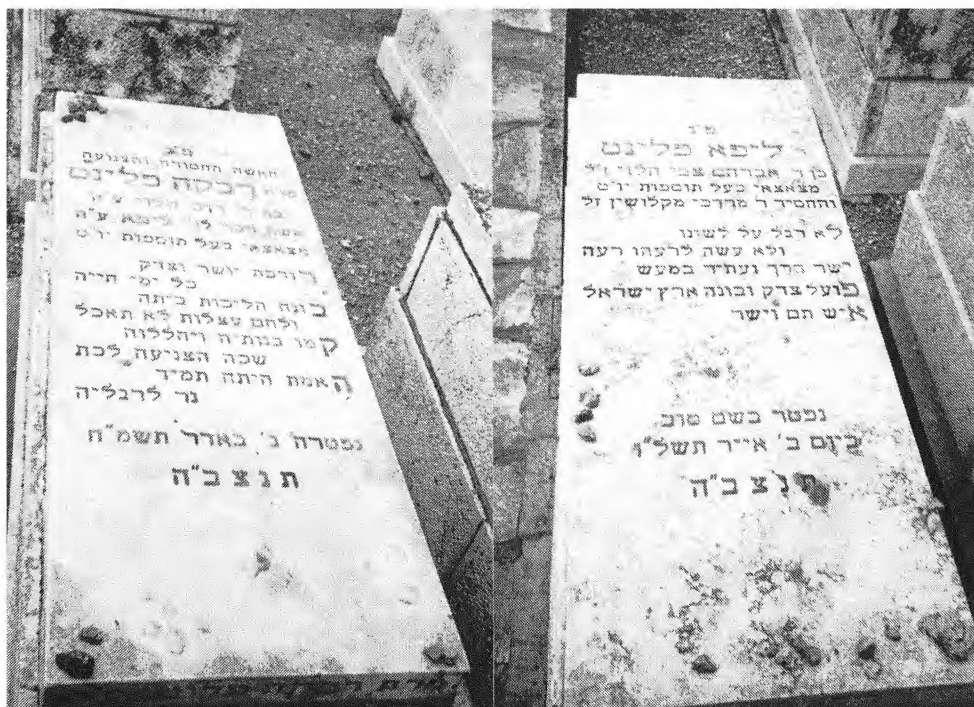 פ"נ
ר ליפא פלינט
בן ר אברהם צבי הלוי ז"ל
מצאצאי בעל תוספות יו"ט
והחסיד ר מרדכי מקלושין זל
לא רגל על לשונו
ולא עשה לרעהו רעה
ישר הדרך במעש
פועל צדק ובונה ארץ ישראל
איש תם וישר
נפטר בשם טוב
ביום ב' אייר תשל"ו
ת נ צ ב"ה
פ"נ
האשה החסודה והצנועה
רבקה פלינט
הלוי
ליפא ע"ה
מצאצאי בעל תוספות יו"ט
יושר וצדק
כל ימי חייה
הליכות ביתה
ולחם עצלות לא תאכל
קמו בנותיה ויהללוה
שכה הצניעה לכת
האמת היתה תמיד
נר לרגליה
נפטרה באדר תשמ"ח
ת נ צ ב"ה